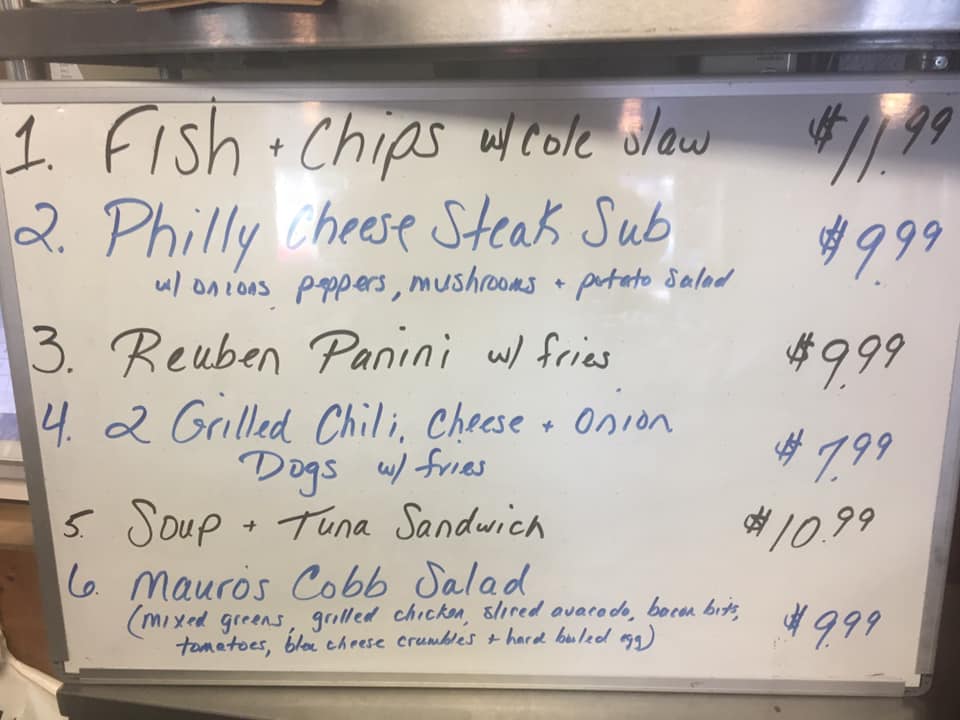 1. Fish + Chips w/ cole slaw $11.99
2. Philly Cheese Steak Sub $9.99
w/ onions peppers, mushrooms + potato salad
3. Reuben Panini w/ fries $9.99
4. 2 Grilled Chili, Cheese + Onion
Dogs w/ fries $7.99
5. Soup + Tuna Sandwich $10.99
6. Mauro's Cobb Salad
(mixed greens, grilled chicken, sliced avacado, bacon bits,
tomatoes, bleu cheese crumbles + hard boiled egg) $9.99